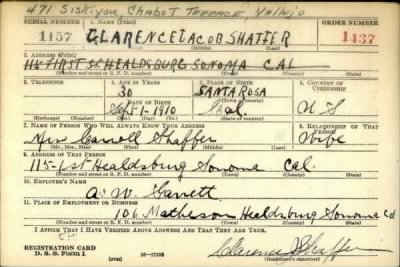 471 Siskiyou, Chabot Terrace, Vallejo
SERIAL NUMBER 1. NAME (Print) ORDER NUMBER
1157 CLARENCE JACOB SHAFFER 1437
2. ADDRESS (Print)
115 FIRST ST HEALDSBURG SONOMA CAL
(Number and street or R. F. D. number) (Town) (County) (State)
3. TELEPHONE 4. AGE IN YEARS 5. PLACE OF BIRTH 6. COUNTRY OF CITIZENSHIP
30 SANTA ROSA
DATE OF BIRTH (Town or county)
Sept-1-1910 Cal. U S
(Exchange) (No.) (Mo.) (Day) (Yr.) (State or country)
7. NAME OF PERSON WHO WILL ALWAYS KNOW YOUR ADDRESS 8. RELATIONSHIP OF THAT PERSON
Mrs Carroll Shaffer Wife
(Mr., Mrs., Miss) (First) (Middle) (Last)
9. ADDRESS OF THAT PERSON
115-1st Healdsburg Sonoma Cal.
(Number and street or R. F. D. number) (Town) (County) (State)
10. EMPLOYER'S NAME
A. W. Garrett
11. PLACE OF EMPLOYMENT OR BUSINESS
106 Matheson Healdsburg Sonoma Cal
(Number and street or R. F. D. number) (Town) (County) (State)
I AFFIRM THAT I HAVE VERIFIED ABOVE ANSWERS AND THAT THEY ARE TRUE.
REGISTRATION CARD
D. S. S. Form 1 (over) 16-17105 Clarence J Shaffer
(Registrant's signature)